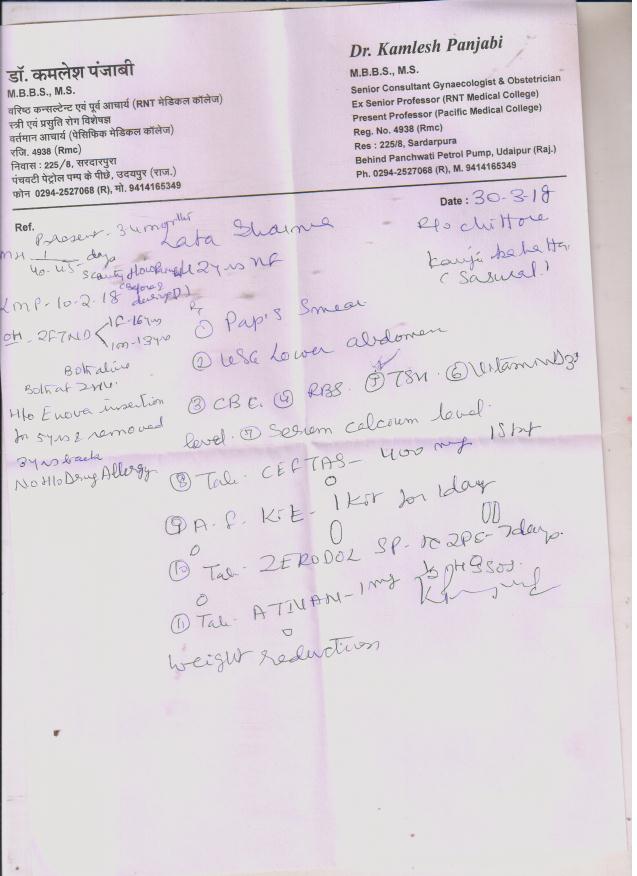 डॉ. कमलेश पंजाबी
M.B.B.S., M.S.
वरिष्ठ कन्सल्टेन्ट एवं पूर्व आचार्य (RNT मेडिकल कॉलेज)
स्त्री एवं प्रसुति रोग विशेषज्ञ
वर्तमान आचार्य (पेसिफिक मेडिकल कॉलेज)
रजि. 4938 (Rmc)
निवास : 225/8, सरदारपुरा
पंचवटी पेट्रोल पम्प के पीछे, उदयपुर (राज.)
फोन 0294-2527068 (R), मो. 9414165349
Dr. Kamlesh Panjabi
M.B.B.S., M.S.
Senior Consultant Gynaecologist & Obstetrician
Ex Senior Professor (RNT Medical College)
Present Professor (Pacific Medical College)
Reg. No. 4938 (Rmc)
Res : 225/8, Sardarpura
Behind Panchwati Petrol Pump, Udaipur (Raj.)
Ph. 0294-2527068 (R), M. 9414165349
Date : 30-3-18
Ref.
Lata Sharma
R/o chittore
(Sasural)
months
MH
40-45 days
LMP-10-2.18
OH - 2FTND
Both alive
H/o insertion
for 5yrs & removed
3yrs back
No H/o Drug Allergy
① Pap's Smear
② USG Lower abdomen
③ CBC. ④ RBS. ⑤ TSH. ⑥ Vitamin D3
level. ⑦ Serum calcium level.
⑧ Tab. CEFTAS- 400 mg
⑨ A.F. Kit- 1 Kit for 1 day
⑩ Tab. ZERODOL SP- 7 days.
⑪ Tab. ATIVAN-1 mg SOS.
Weight reduction